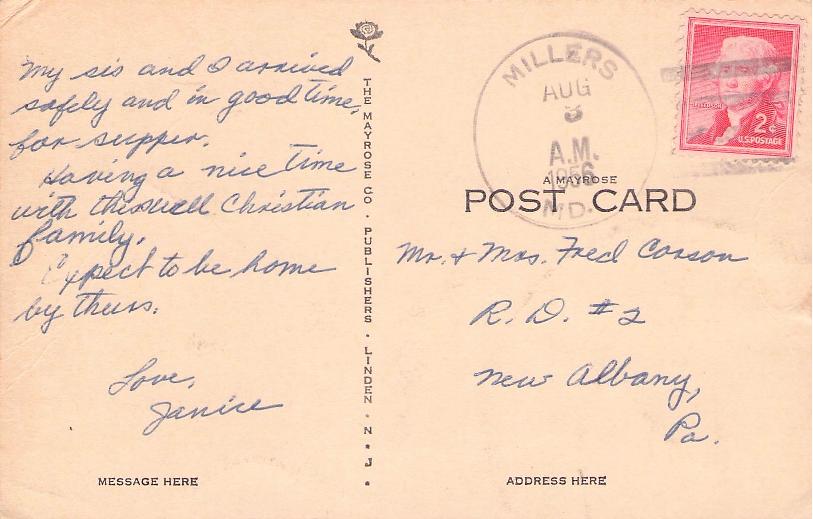 My sis and I arrived
safely and in good time,
for supper.
Having a nice time
with this well Christian
family.
Expect to be home
by thurs.
Love,
Janice
MESSAGE HERE
THE MAYROSE CO. PUBLISHERS. LINDEN. N. J.
MILLERS
AUG
A.M.
1956
MD.
JEFFERSON
2¢
U.S. POSTAGE
A MAYROSE
POST CARD
Mr. & Mrs. Fred Corson
R. D. #2
New Albany,
Pa.
ADDRESS HERE